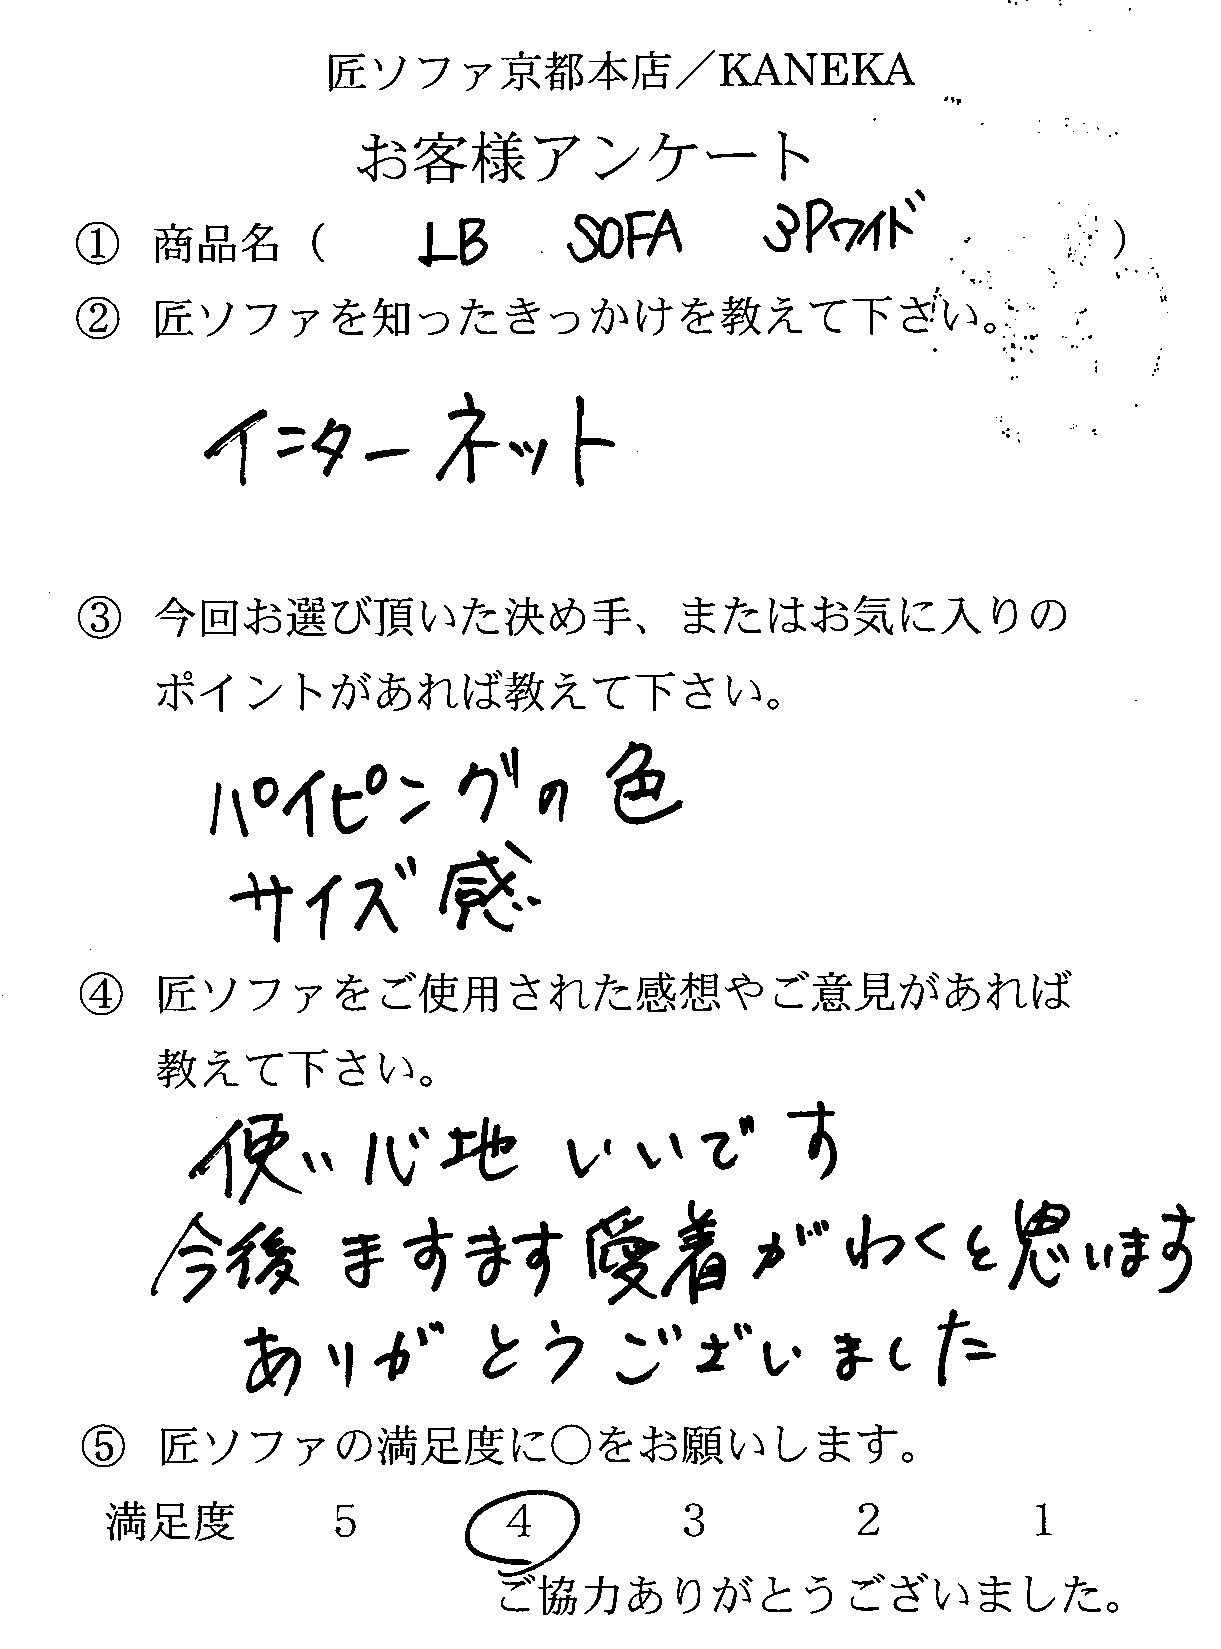 匠ソファ京都本店／KANEKA
お客様アンケート
① 商品名（ LB SOFA 3Pワイド ）
② 匠ソファを知ったきっかけを教えて下さい。
インターネット
③ 今回お選び頂いた決め手、またはお気に入りの
ポイントがあれば教えて下さい。
パイピングの色
サイズ感
④ 匠ソファをご使用された感想やご意見があれば
教えて下さい。
使い心地いいです
今後ますます愛着がわくと思います
ありがとうございました
⑤ 匠ソファの満足度に○をお願いします。
満足度 5 4 3 2 1
ご協力ありがとうございました。